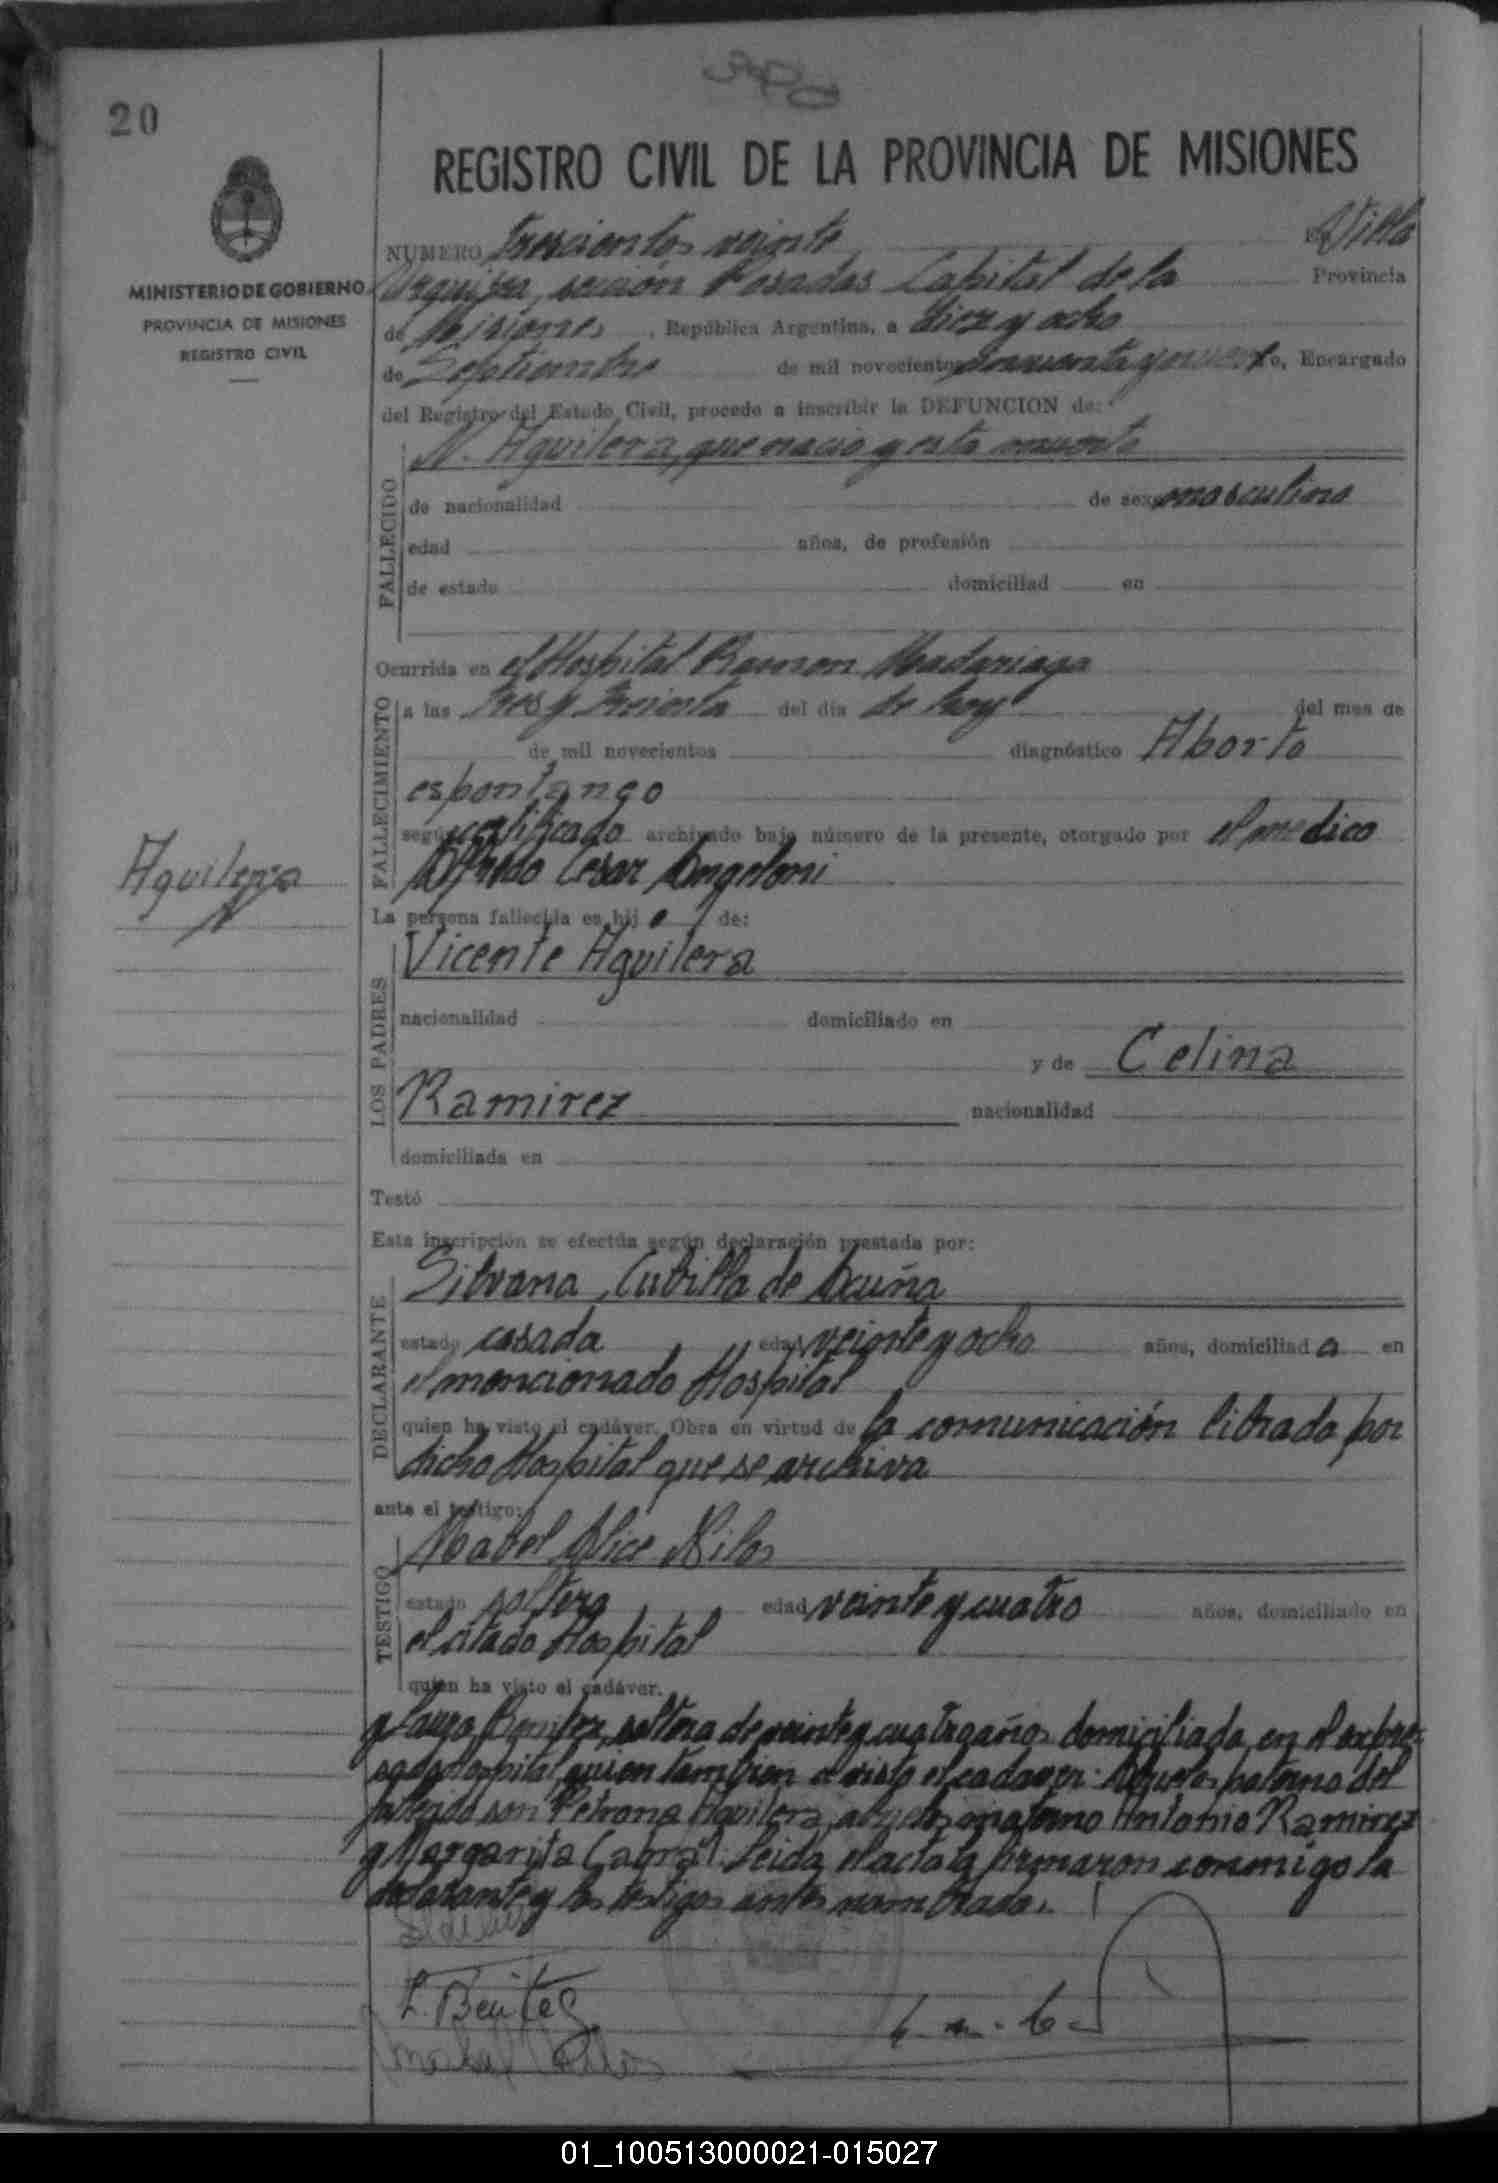 20
REGISTRO CIVIL DE LA PROVINCIA DE MISIONES
MINISTERIO DE GOBIERNO
PROVINCIA DE MISIONES
REGISTRO CIVIL
NUMERO Trescientos veinte En Villa
Urquiza, sección Posadas Capital de la Provincia
de Misiones, República Argentina, a diez y ocho
de Septiembre de mil novecientos cincuenta y nueve yo, Encargado
del Registro del Estado Civil, procedo a inscribir la DEFUNCION de:
FALLECIDO
N. Aguilera, que nacio y esta muerto
de nacionalidad de sexo masculino
edad años, de profesión
de estado domiciliad en
Ocurrida en el Hospital Ramon Madariaga
FALLECIMIENTO
a las tres y treinta del día de hoy del mes de
de mil novecientos diagnóstico Aborto
espontaneo
según certificado archivado bajo número de la presente, otorgado por el medico
Alfredo Cesar Angeloni
Aguilera
N
La persona fallecida es hij o de:
LOS PADRES
Vicente Aguilera
nacionalidad domiciliado en
y de Celina
Ramirez nacionalidad
domiciliada en
Testó
Esta inscripción se efectúa según declaración prestada por:
DECLARANTE
Silvana Cubilla de Acuña
estado casada edad veinte y ocho años, domiciliad a en
el mencionado Hospital
quien ha visto el cadáver. Obra en virtud de la comunicación librada por
dicho Hospital que se archiva
ante el testigo:
TESTIGO
Mabel Alice
estado soltera edad veinte y cuatro años, domiciliado en
el citado Hospital
quien ha visto el cadáver.
y Laura Benitez, soltera de veinte y cuatro años domiciliada en el expre-
sado Hospital quien tambien a visto el cadaver. Abuelos paterno del
fallecido son Petrona Aguilera, abuelos materno Antonio Ramirez
y Margarita Cabral. Leida el acta la firmaron conmigo la
declarante y los testigos antes nombrados.
L. Benitez
01_100513000021-015027